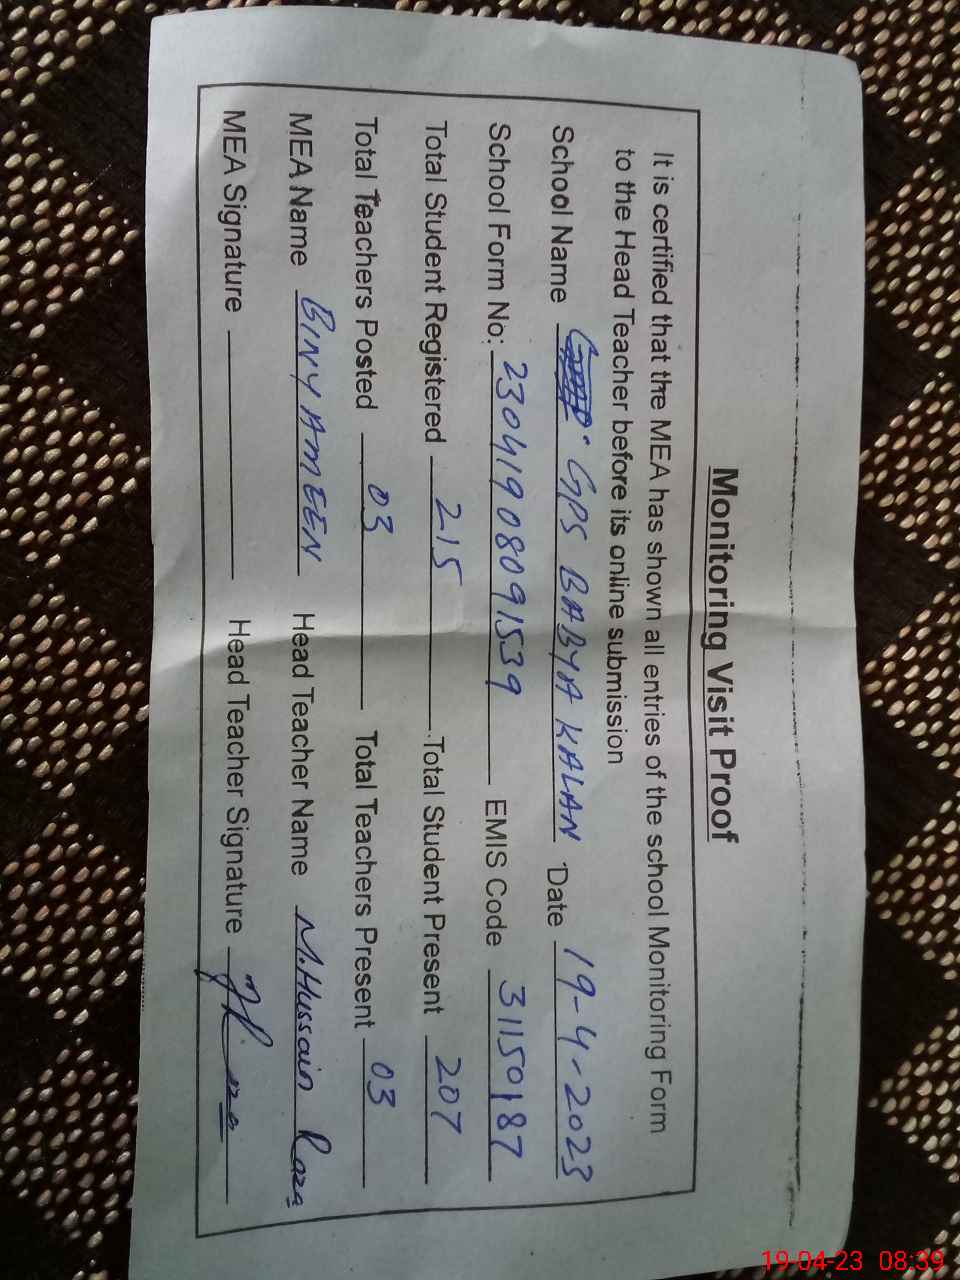 Monitoring Visit Proof
It is certified that the MEA has shown all entries of the school Monitoring Form
to the Head Teacher before its online submission
School Name GPS BABYA KALAN Date 19-4-2023
School Form No: 23041908091539 EMIS Code 31150187
Total Student Registered 215 Total Student Present 207
Total Teachers Posted 03 Total Teachers Present 03
MEA Name BINYAMEEN Head Teacher Name M.Hussain Raza
MEA Signature Head Teacher Signature
19-04-23 08:39